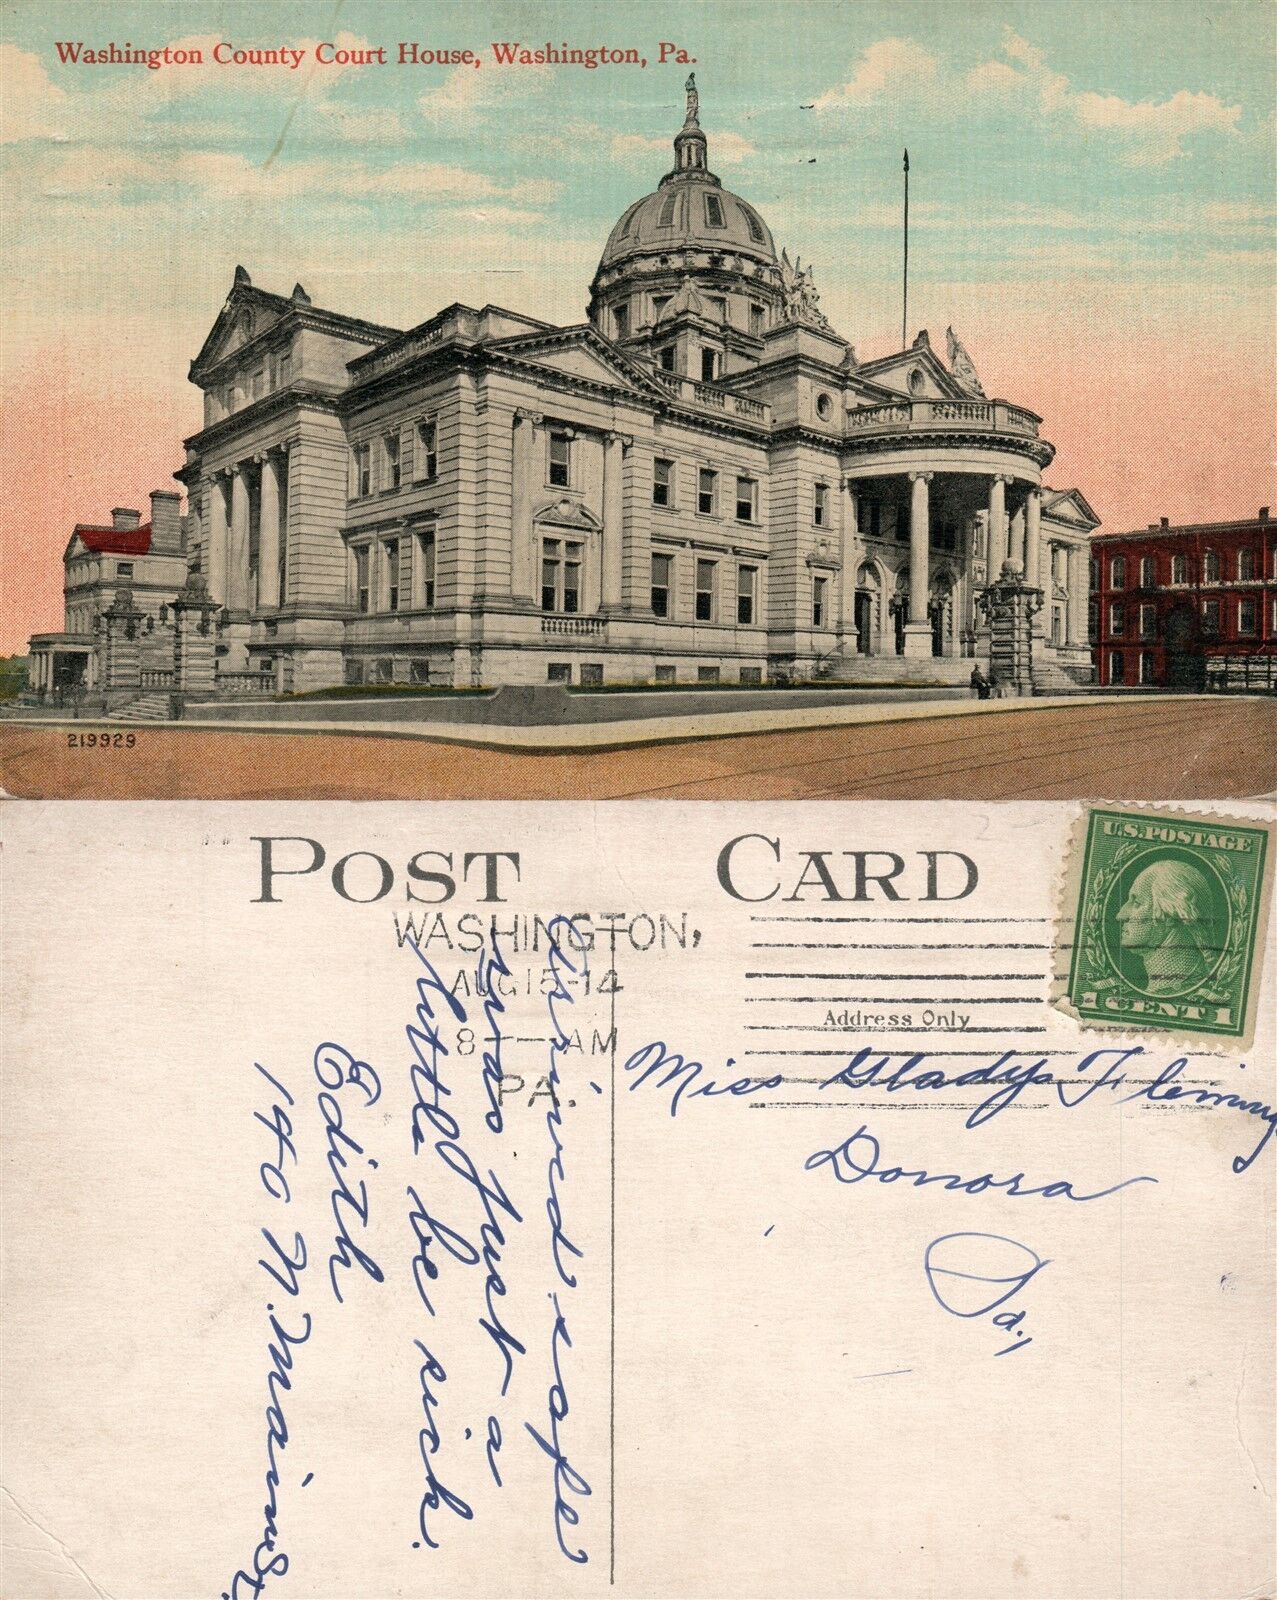 Washington County Court House, Washington, Pa.
219929
POST CARD
U.S. POSTAGE
1 CENT 1
WASHINGTON,
AUG 15-14
8 — AM
PA.
Address Only
Miss Gladys Fleming
Donora
Pa.,
Arrived safe
was just a
little be sick.
Edith
140 N. Main St.